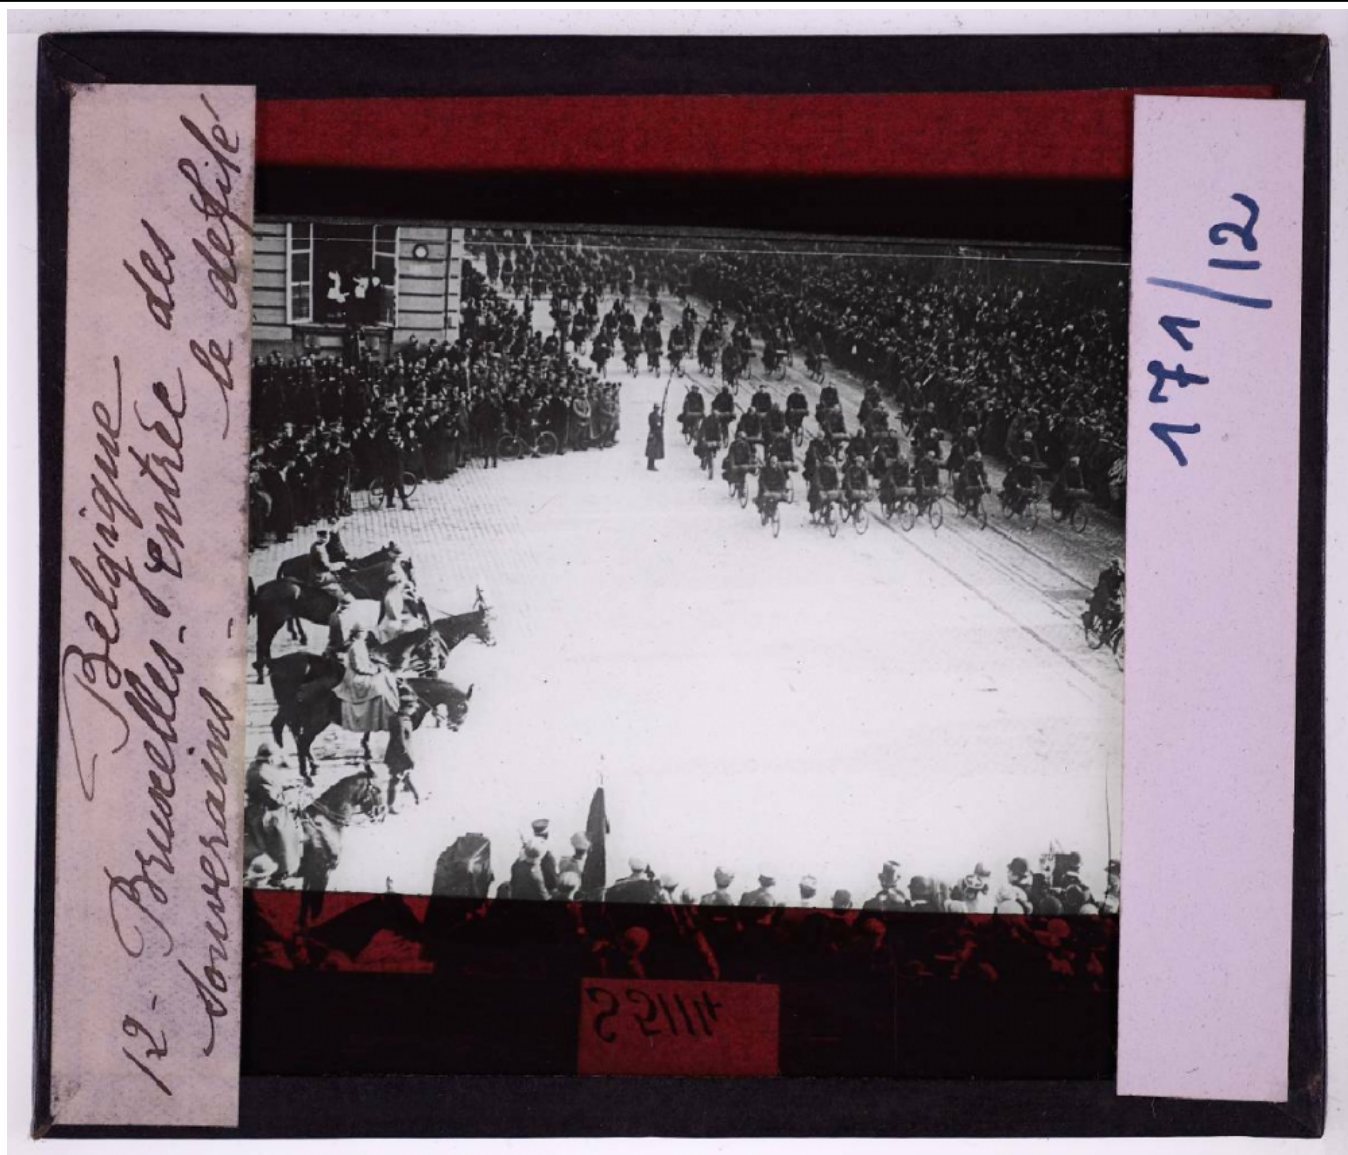 Belgique
12 - Bruxelles - Entrée des
souverains - le defilé
171/12
S 5114